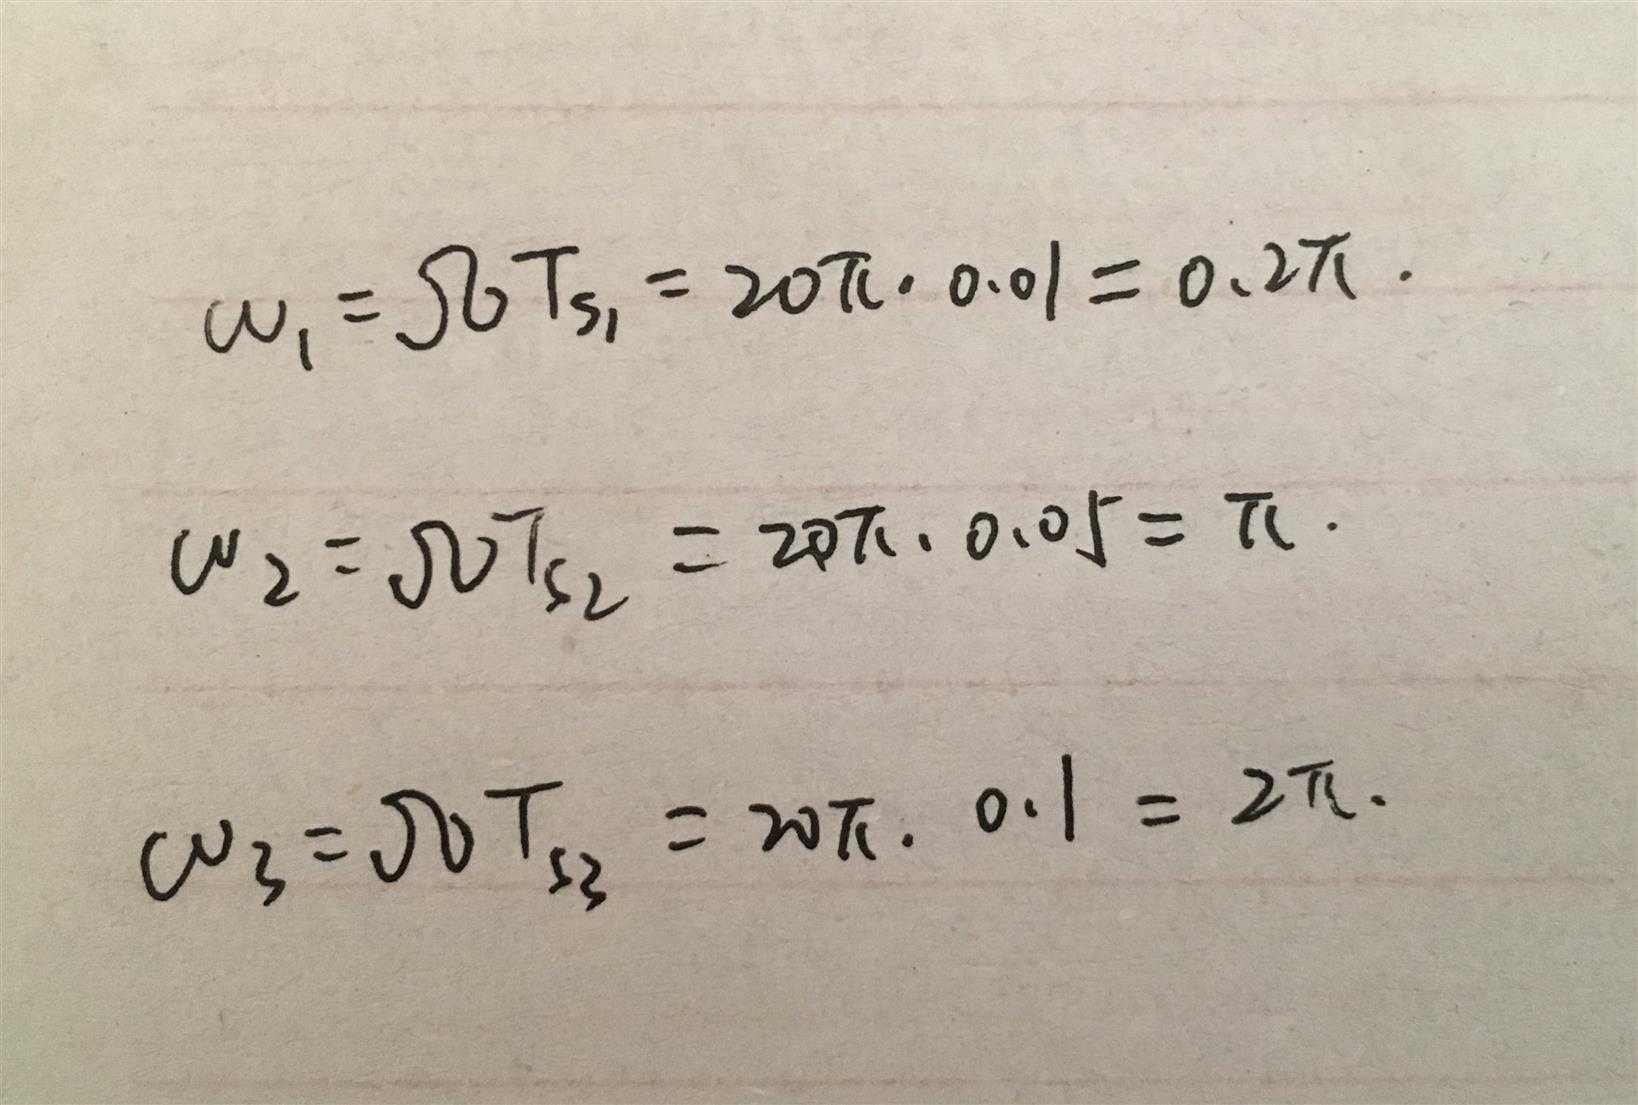 ω₁ = ΩTs₁ = 20π · 0.01 = 0.2π.
ω₂ = ΩTs₂ = 20π · 0.05 = π.
ω₃ = ΩTs₃ = 20π · 0.1 = 2π.